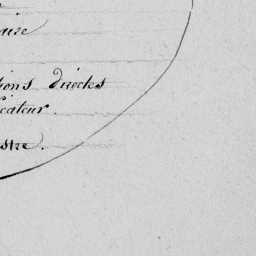 aire
tions directes
icateur.
stre.